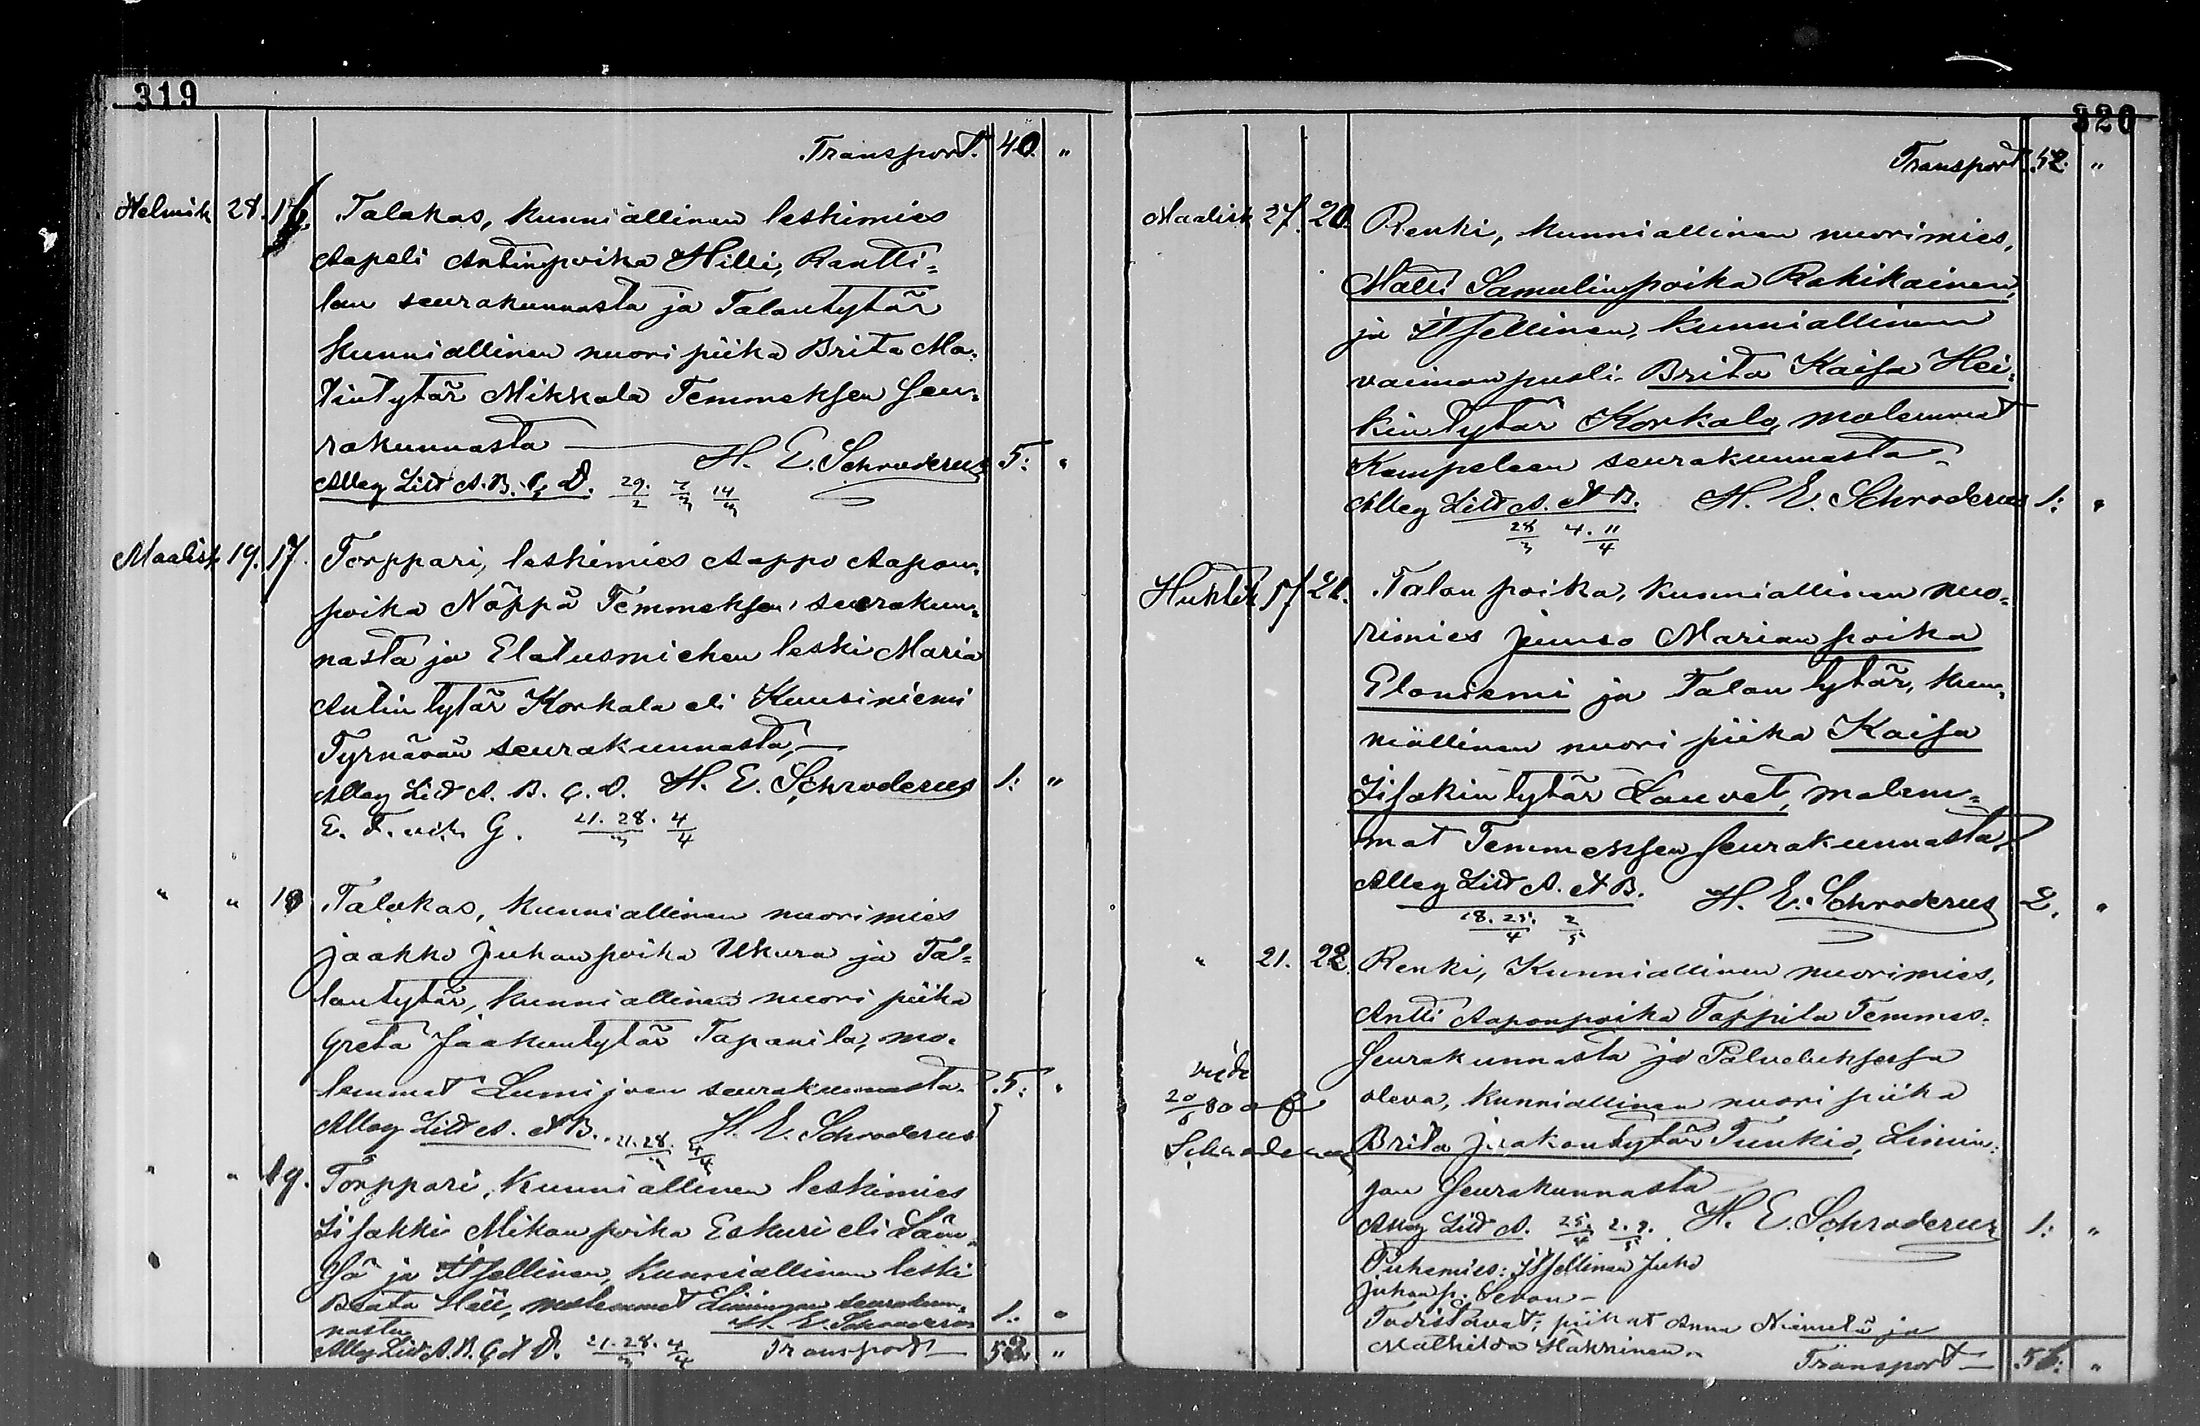 319
Transport. 40. "
Helmik 28. 16. Talokas, kunniallinen leskimies
Aapeli Antinpoika Hilli, Rantti=
lan seurakunnasta ja Talontytär
kunniallinen nuori piika Brita Ma=
tintytär Mikkola Temmeksen seu=
rakunnasta — H. E. Schroderus 5: "
Alleg Litt A. B. C. D. 29/2 7/3 14/3
Maalisk 19. 17. Torppari, leskimies Aappo Aapon=
poika Näppä Temmeksen seurakun=
nasta ja Elatusmiehen leski Maria
Antin tytär Korkala eli Kuusiniemi
Tyrnävän seurakunnasta, —
Alleg Litt A. B. C. D. H. E. Schroderus 1: "
E. F. och G. 21. 28./3 4/4
" " 18 Talokas, kunniallinen nuorimies
Jaakko Juhanpoika Ukura ja Ta=
lontytär, kunniallinen nuori piika
Greta Jaakuntytär Tapanila, mo=
lemmat Lumijoen seurakunnasta. 5: "
Alleg Litt A. & B. 21. 28./3 4/4 H. E. Schroderus
" " 19. Torppari, kunniallinen leskimies
Iisakki Mikonpoika Eskuri eli Läm=
sä ja Itsellinen, kunniallinen leski
Beata Hilli, molemmat Limingan seurakun= 1: "
nasta H. E. Schroderus
Alleg Litt A. B. C & D. 21. 28./3 4/4 Transport 52. "
320
Transport. 52. "
Maalisk 27. 20. Renki, kunniallinen nuorimies,
Matti Samulinpoika Rahikainen,
ja Itsellinen, kunniallinen
vaimonpuoli Brita Kaisa Hei=
kin tytär Korkala, molemmat
Kempeleen seurakunnasta
Alleg Litt A. & B. H. E. Schroderus 1: "
28/3 4. 11/4
Huhtik 17 21. Talon poika, kunniallinen nuo=
rimies Juuso Marian poika
Eloniemi ja Talon tytär, kun=
niallinen nuori piika Kaisa
Iisakin tytär Lauvet, molem=
mat Temmeksen seurakunnasta
Alleg Litt A. & B. H. E. Schroderus 2. "
18. 25./4 2/5
" 21. 22. Renki, kunniallinen nuorimies,
Antti Aaponpoika Tappila Temmes.
seurakunnasta ja Palveluksessa
oleva, kunniallinen nuori piika
Brita Jaakontytär Tunkio, Limin=
gan seurakunnasta
Alleg Litt A. 25/4 2. 9./5 H. E. Schroderus 1: "
Puhemies: Itsellinen Juho
Juhan p. Sevon —
Todistavat; piikat Anna Niemelä ja
Mathilda Häkkinen.
Transport — 56: "